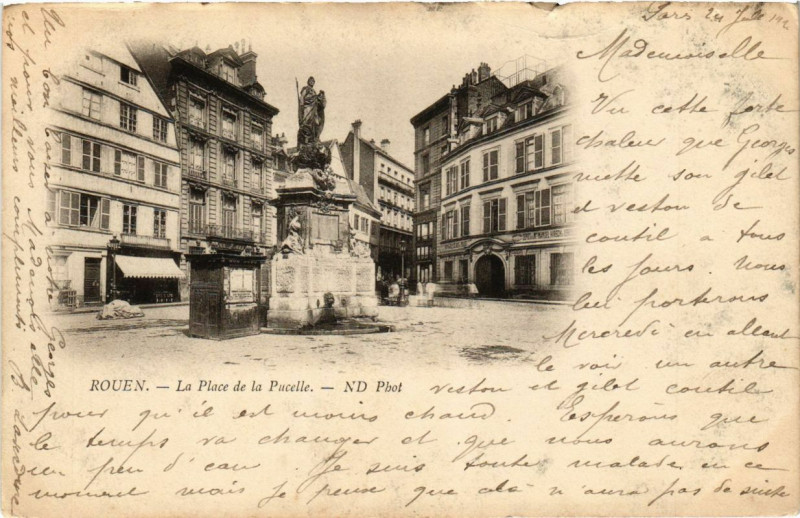 Paris 24 Juil
Mademoiselle
Vu cette forte
chaleur que Georges
mette son gilet
et veston de
coutil a tous
les jours. Nous
lui porterons
Mercredi en allant
le voir un autre
veston et gilet coutil
pour qu'il est moins chaud. Esperons que
le temps va changer et que nous aurons
un peu d'eau. Je suis toute malade en ce
moment mais je pense que cela n'aura pas de suite
Un bon baiser à notre Georges
et pour vous Mademoiselle
nos meilleurs compliments
ROUEN. — La Place de la Pucelle. — ND Phot